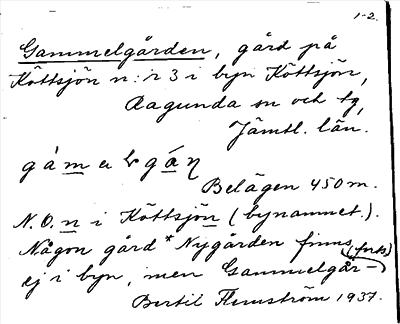 1-2.
Gammelgården, gård på
Köttsjön n:r 3 i byn Köttsjön,
Ragunda sn och tg,
Jämtl. län.
Belägen 450 m.
N. O. n i Köttsjön (bynamnet.).
Någon gård *Nygården finns (förts)
ej i byn, men Gammelgår-
Bertil Flemström 1937.